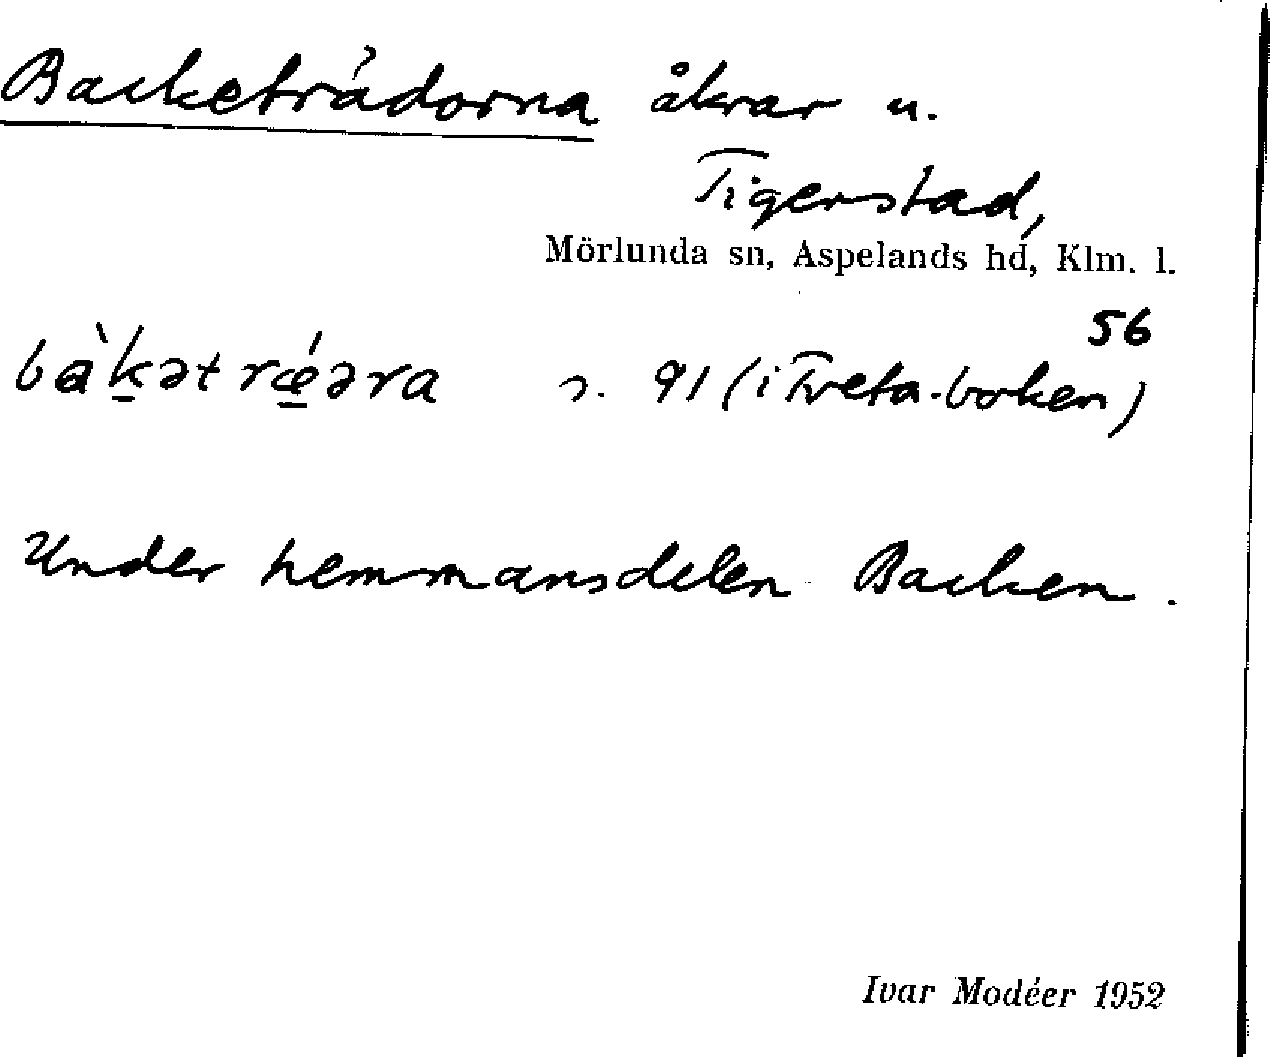 Backeträdorna åkrar u.
Tigerstad,
Mörlunda sn, Aspelands hd, Klm. l.
56
bàk̠ət rǽ̠əra s. 91 (i Tveta-boken)
Under hemmansdelen Backen.
Ivar Modéer 1952